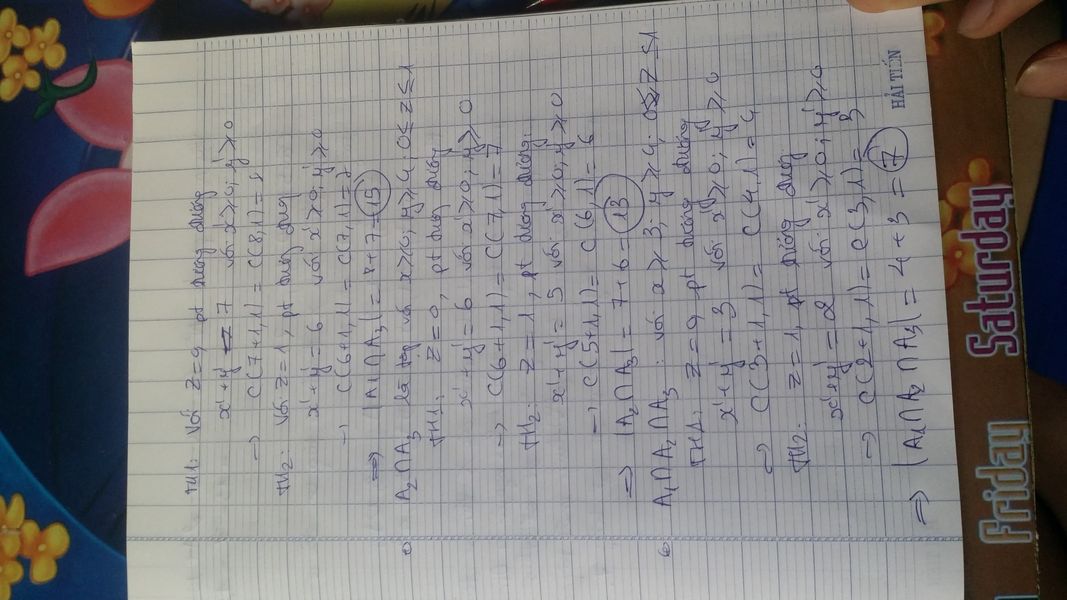 TH1: Với z = 0, pt tương đương
x' + y' = 7 với x' ≥ 0; y' ≥ 0
→ C(7+1,1) = C(8,1) = 8
TH2: với z = 1, pt tương đương
x' + y' = 6 với x' ≥ 0; y' ≥ 0
→ C(6+1,1) = C(7,1) = 7
⇒ |A1 ∩ A3| = 8 + 7 = 15
A2 ∩ A3 là tập với x ≥ 0; y ≥ 4; 0 ≤ z ≤ 1
TH1: z = 0, pt tương đương
x' + y' = 6 với x' ≥ 0; y' ≥ 0
→ C(6+1,1) = C(7,1) = 7
TH2: z = 1, pt tương đương:
x' + y' = 5 với x' ≥ 0; y' ≥ 0
→ C(5+1,1) = C(6,1) = 6
⇒ |A2 ∩ A3| = 7 + 6 = 13
A1 ∩ A2 ∩ A3: với x ≥ 3; y ≥ 4; 0 ≤ z ≤ 1
TH1: z = 0 pt tương đương
x' + y' = 3 với x' ≥ 0; y' ≥ 0
⇒ C(3+1,1) = C(4,1) = 4
TH2: z = 1, pt tương đương
x' + y' = 2 với x' ≥ 0; y' ≥ 0
→ C(2+1,1) = C(3,1) = 3
⇒ |A1 ∩ A2 ∩ A3| = 4 + 3 = 7
HẢI TIẾN
Friday Saturday